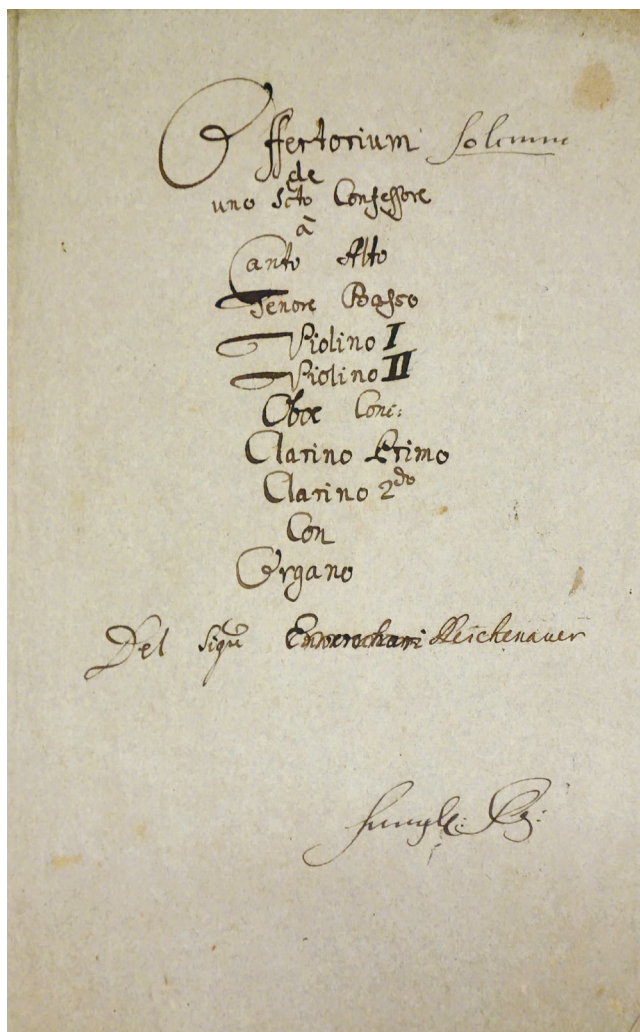 Offertorium Solemne
de
uno Scto Confessore
à
Canto Alto
Tenore Basso
Violino I
Violino II
Oboe Conc:
Clarino Primo
Clarino 2do
Con
Organo
Del Sigre Reichenauer